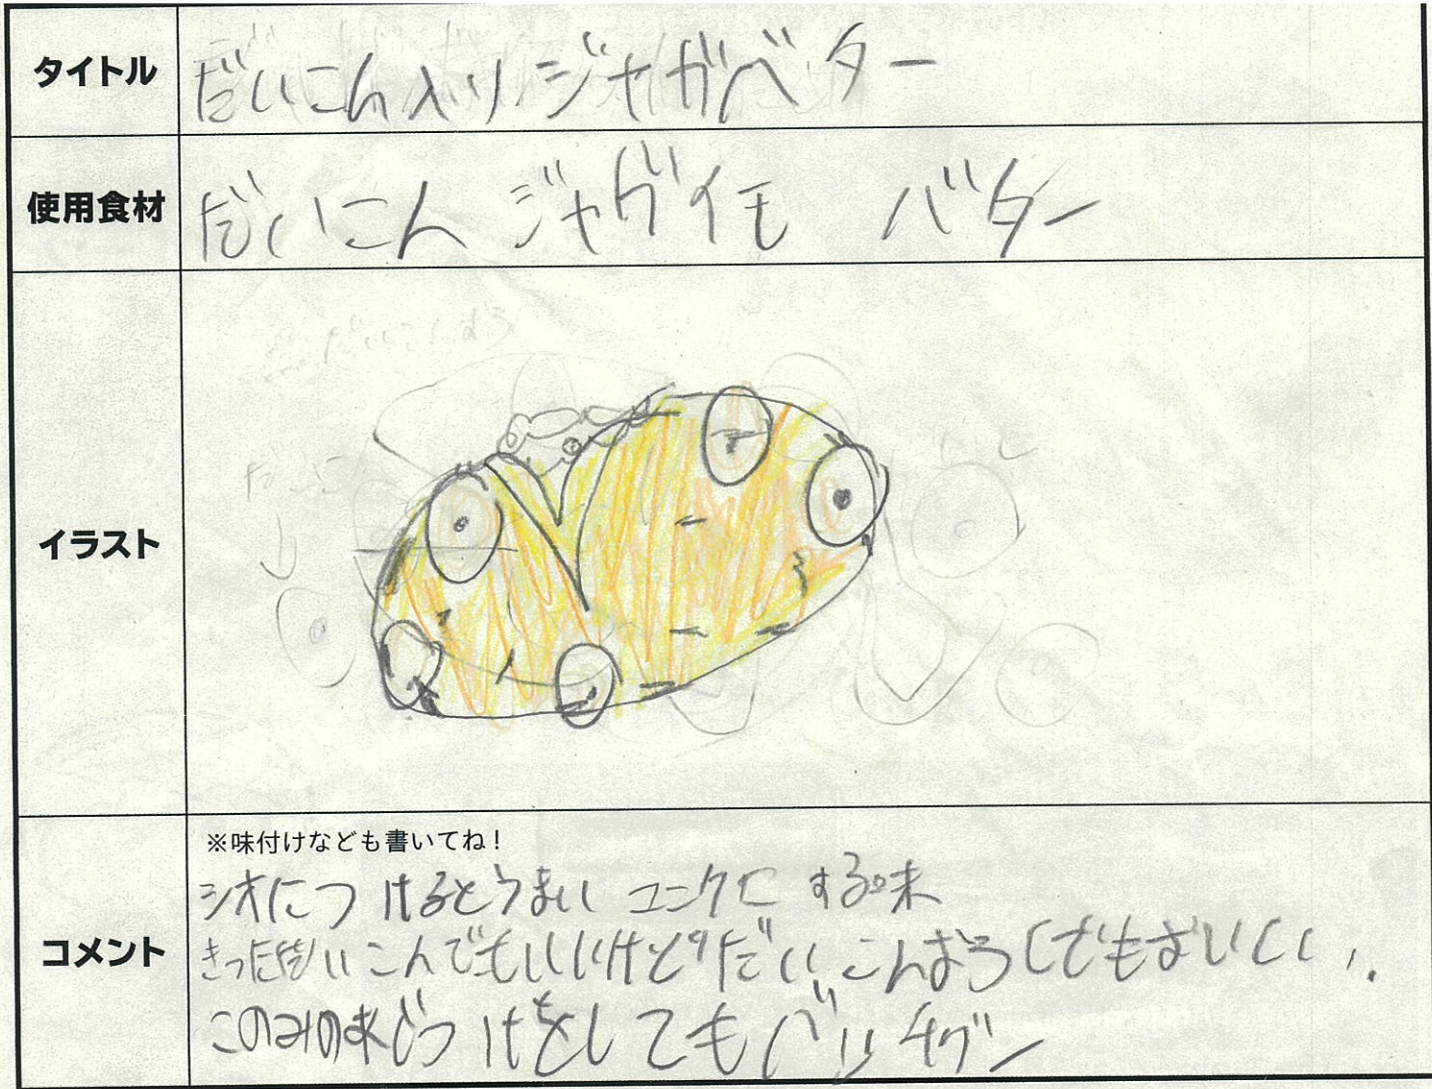 タイトル
だいこん入りジャガベター
使用食材
だいこん ジャガイモ バター
イラスト
だいこ
コメント
※味付けなども書いてね!
シオにつけるとうまい コニクモ する味
きっただいこんでもいいけど だいこんおろしでもおいしい、.
このみの味づけをしてもバリチグー